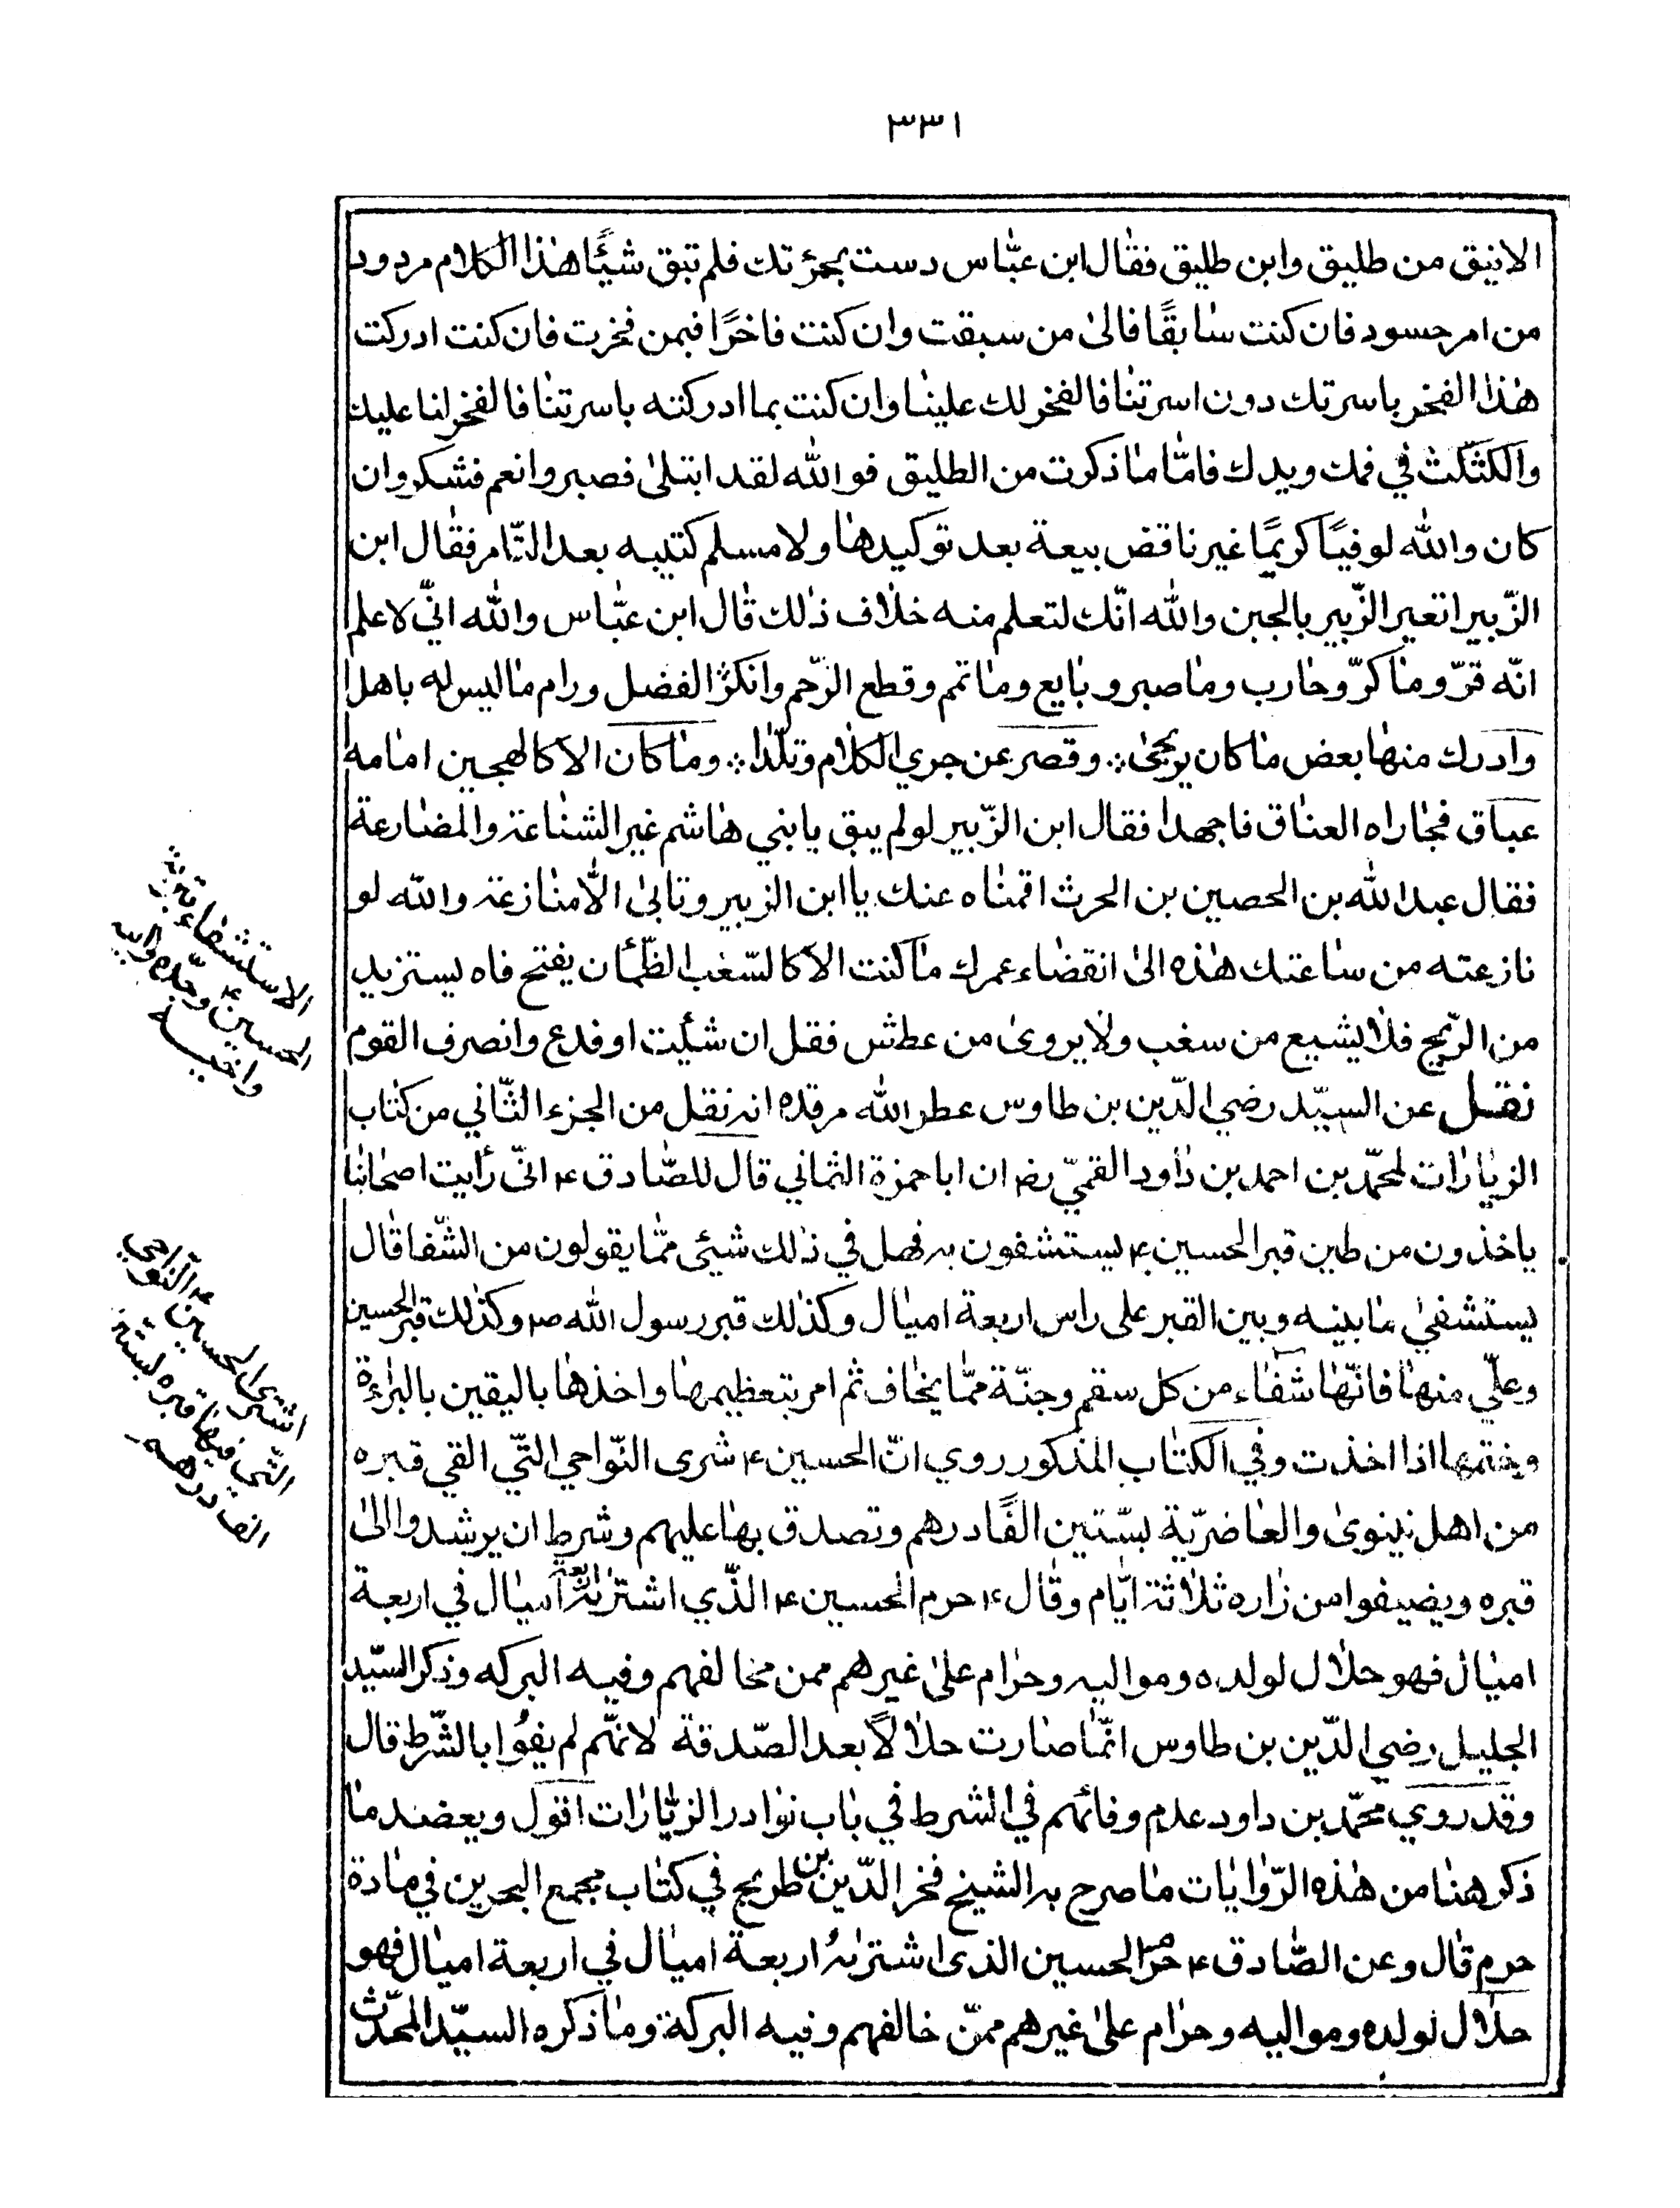 ٣٣١
الانيق من طليق وابن طليق فقال ابن عبّاس دست بجرّتك فلم تبق شيئًا هذا الكلام مردود
من امر حسود فان كنت سابقًا فالى من سبقت وان كنت فاخرًا فبمن فخرت فان كنت ادركت
هذا الفخر باسرتك دون اسرتنا فالفخر لك علينا وان كنت بما ادركته باسرتنا فالفخر لنا عليك
والكثكث في فمك ويدك فامّا ما ذكرت من الطليق فو الله لقد ابتلى فصبر وانعم فشكر وان
كان والله لوفيًا كريمًا غير ناقض بيعة بعد توكيدها ولا مسلم كتيبه بعد التّامر فقال ابن
الزّبير اتعير الزّبير بالجبن والله انّك لتعلم منه خلاف ذلك قال ابن عبّاس والله انّي لا علم
انّه فرّ وما كرّ وحارب وما صبر وبايع وما تمم وقطع الرّحم وانكر الفضل ورام ما ليس له باهل
وادرك منها بعض ما كان يرتجى ∴ وقصر عن جري الكلام وتلّدا ∴ وما كان الا كالهجين امامه
عباق فجاراه العناق فاجهدا فقال ابن الزّبير لو لم يبق يا بني هاشم غير الشناعة والمضارعة
فقال عبد الله بن الحصين بن الحرث اقمناه عنك يا ابن الزبير وتابى الّا منازعة والله لو
نازعته من ساعتك هذه الى انقضاء عمرك ما كنت الا كالسّغب الظّمأن يفتح فاه يستزيد
من الرّيح فلا يشبع من سغب ولا يروى من عطش فقل ان شئيت او فدع وانصرف القوم
نقل عن السيّد رضي الدّين بن طاوس عطر الله مرقده انه نقل من الجزء الثّاني من كتاب
الزيارات لمحمّد بن احمد بن داود القميّ رض ان ابا حمزة الثمالي قال للصّادق ع انّى رأيت اصحابنا
ياخذون من طين قبر الحسين ع يستشفون به فهل في ذلك شيئى ممّا يقولون من الشّفا قال
يستشفي ما بينه وبين القبر على راس اربعة اميال وكذلك قبر رسول الله ص وكذلك قبر الحسين
وعلّي منها فانّها شفاء من كل سقم وجنّة ممّا يخاف ثم امر بتعظيمها واخذها باليقين بالبراءة
وختمها اذا اخذت وفي الكتاب المذكور روي انّ الحسين ع شرى النّواحي التّي القي قبره
من اهل نينوى والعاضريّة بستين الفًا درهم وتصدق بها عليهم وشرط ان يرشدوا الى
قبره ويضيفوا من زاره ثلاثة ايّام وقال ع حرم الحسين ع الذّي اشتراه اربعة اميال في اربعة
اميال فهو حلال لولده ومواليه وحرام على غيرهم ممن مخالفهم وفيه البركه وذكر السّيد
الجليل رضي الدّين بن طاوس انّما صارت حلالًا بعد الصّدقة لانّهم لم يفوا بالشّرط قال
وقد روي محمّد بن داود عدم وفائهم في الشرط في باب نوادر الزّيارات اقول ويعضد ما
ذكر هنا من هذه الرّوايات ما صرح به الشيخ فخر الدّين بن طريح في كتاب مجمع البحرين في مادة
حرم قال وعن الصّادق ع حرم الحسين الذى اشتراه اربعة اميال في اربعة اميال فهو
حلال لولده ومواليه وحرام على غيرهم ممّن خالفهم وفيه البركة وما ذكره السيّد المحدّث
الاستشفاء بتربة
الحسين ع وجدّه وابيه
واخيه
اشترى الحسين ع النواحي
التّي فيها قبره بستين
الف درهم